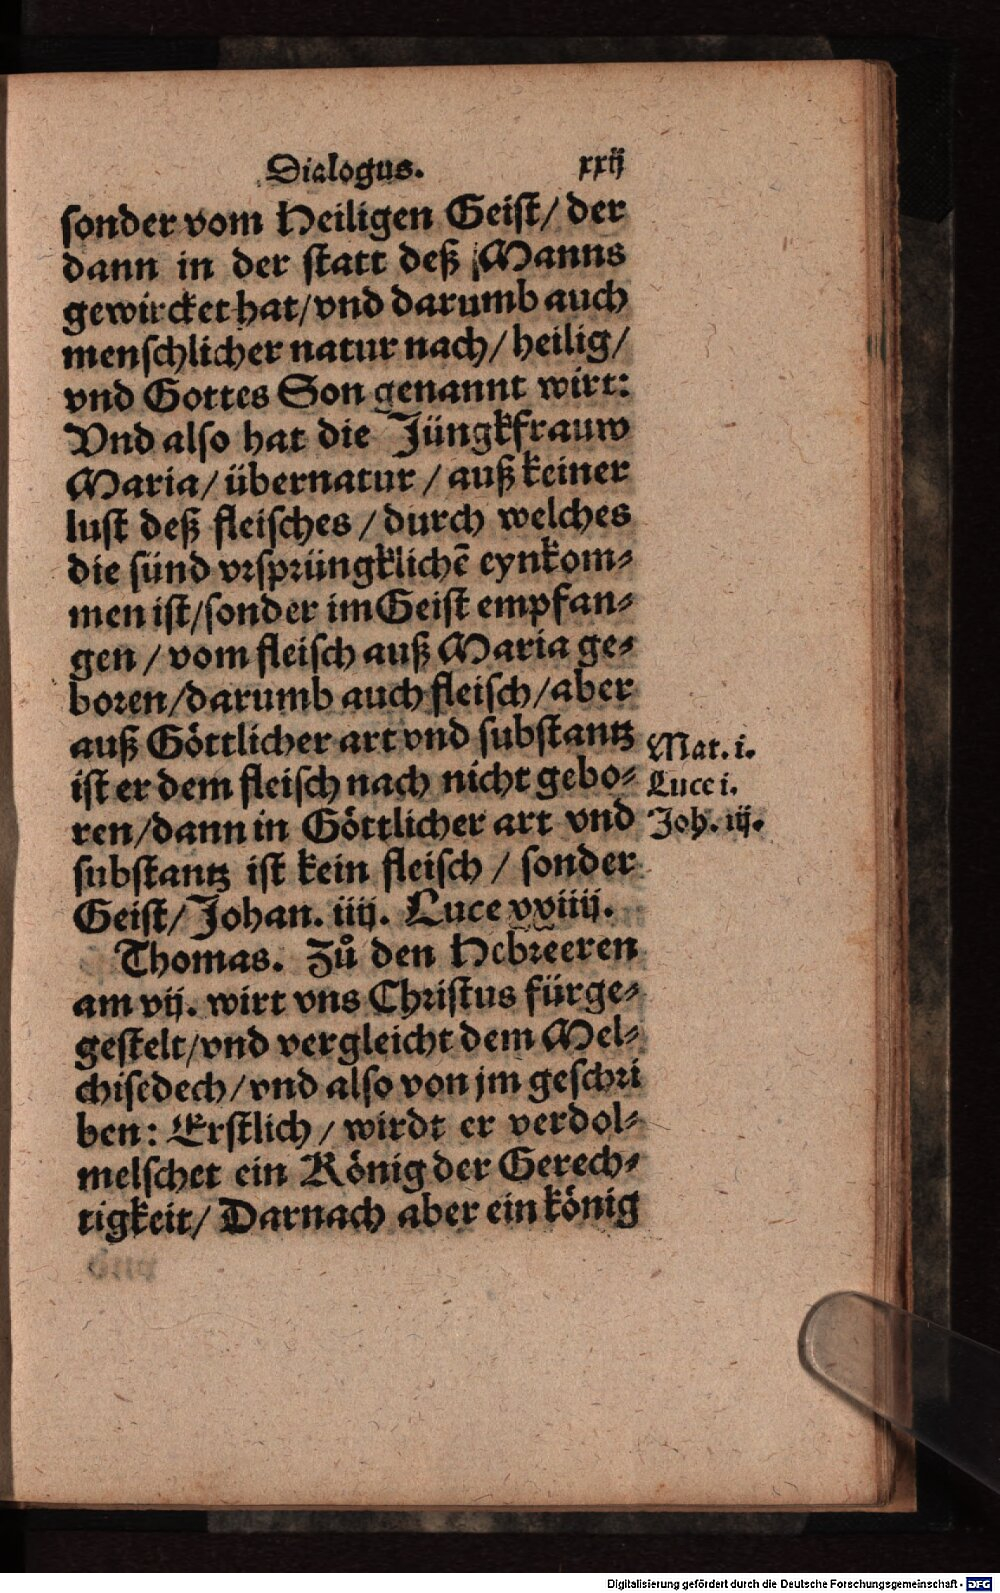 Dialogus. xxij
sonder vom Heiligen Geist/ der
dann in der statt deß Manns
gewircket hat/ vnd darumb auch
menschlicher natur nach/ heilig/
vnd Gottes Son genannt wirt:
Vnd also hat die Jüngkfrauw
Maria/ übernatur / auß keiner
lust deß fleisches / durch welches
die sünd vrsprüngklichē eynkom⸗
men ist/ sonder im Geist empfan⸗
gen / vom fleisch auß Maria ge⸗
boren/ darumb auch fleisch/ aber
auß Göttlicher art vnd substantz
ist er dem fleisch nach nicht gebo⸗
ren/ dann in Göttlicher art vnd
substantz ist kein fleisch / sonder
Geist/ Johan. iiij. Luce xxiiij.
Mat. i.
Luce i.
Joh. iij.
Thomas. Zů den Hebreeren
am vij. wirt vns Christus fürge⸗
gestelt/ vnd vergleicht dem Mel⸗
chisedech/ vnd also von jm geschri
ben: Erstlich / wirdt er verdol⸗
melschet ein König der Gerech⸗
tigkeit/ Darnach aber ein könig
Digitalisierung gefördert durch die Deutsche Forschungsgemeinschaft - DFG